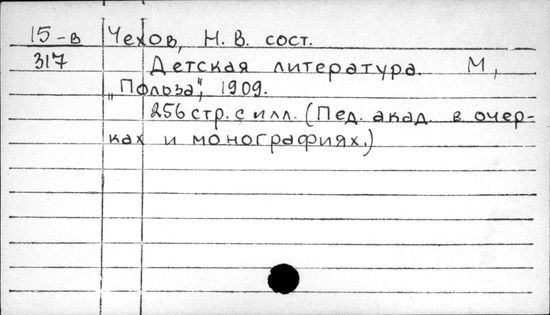 15-в Чехов, Н. В. сост.
317 Детская литература. М,
„Польза", 1909.
256 стр. с илл. (Пед. акад. в очер-
ках и монографиях.)